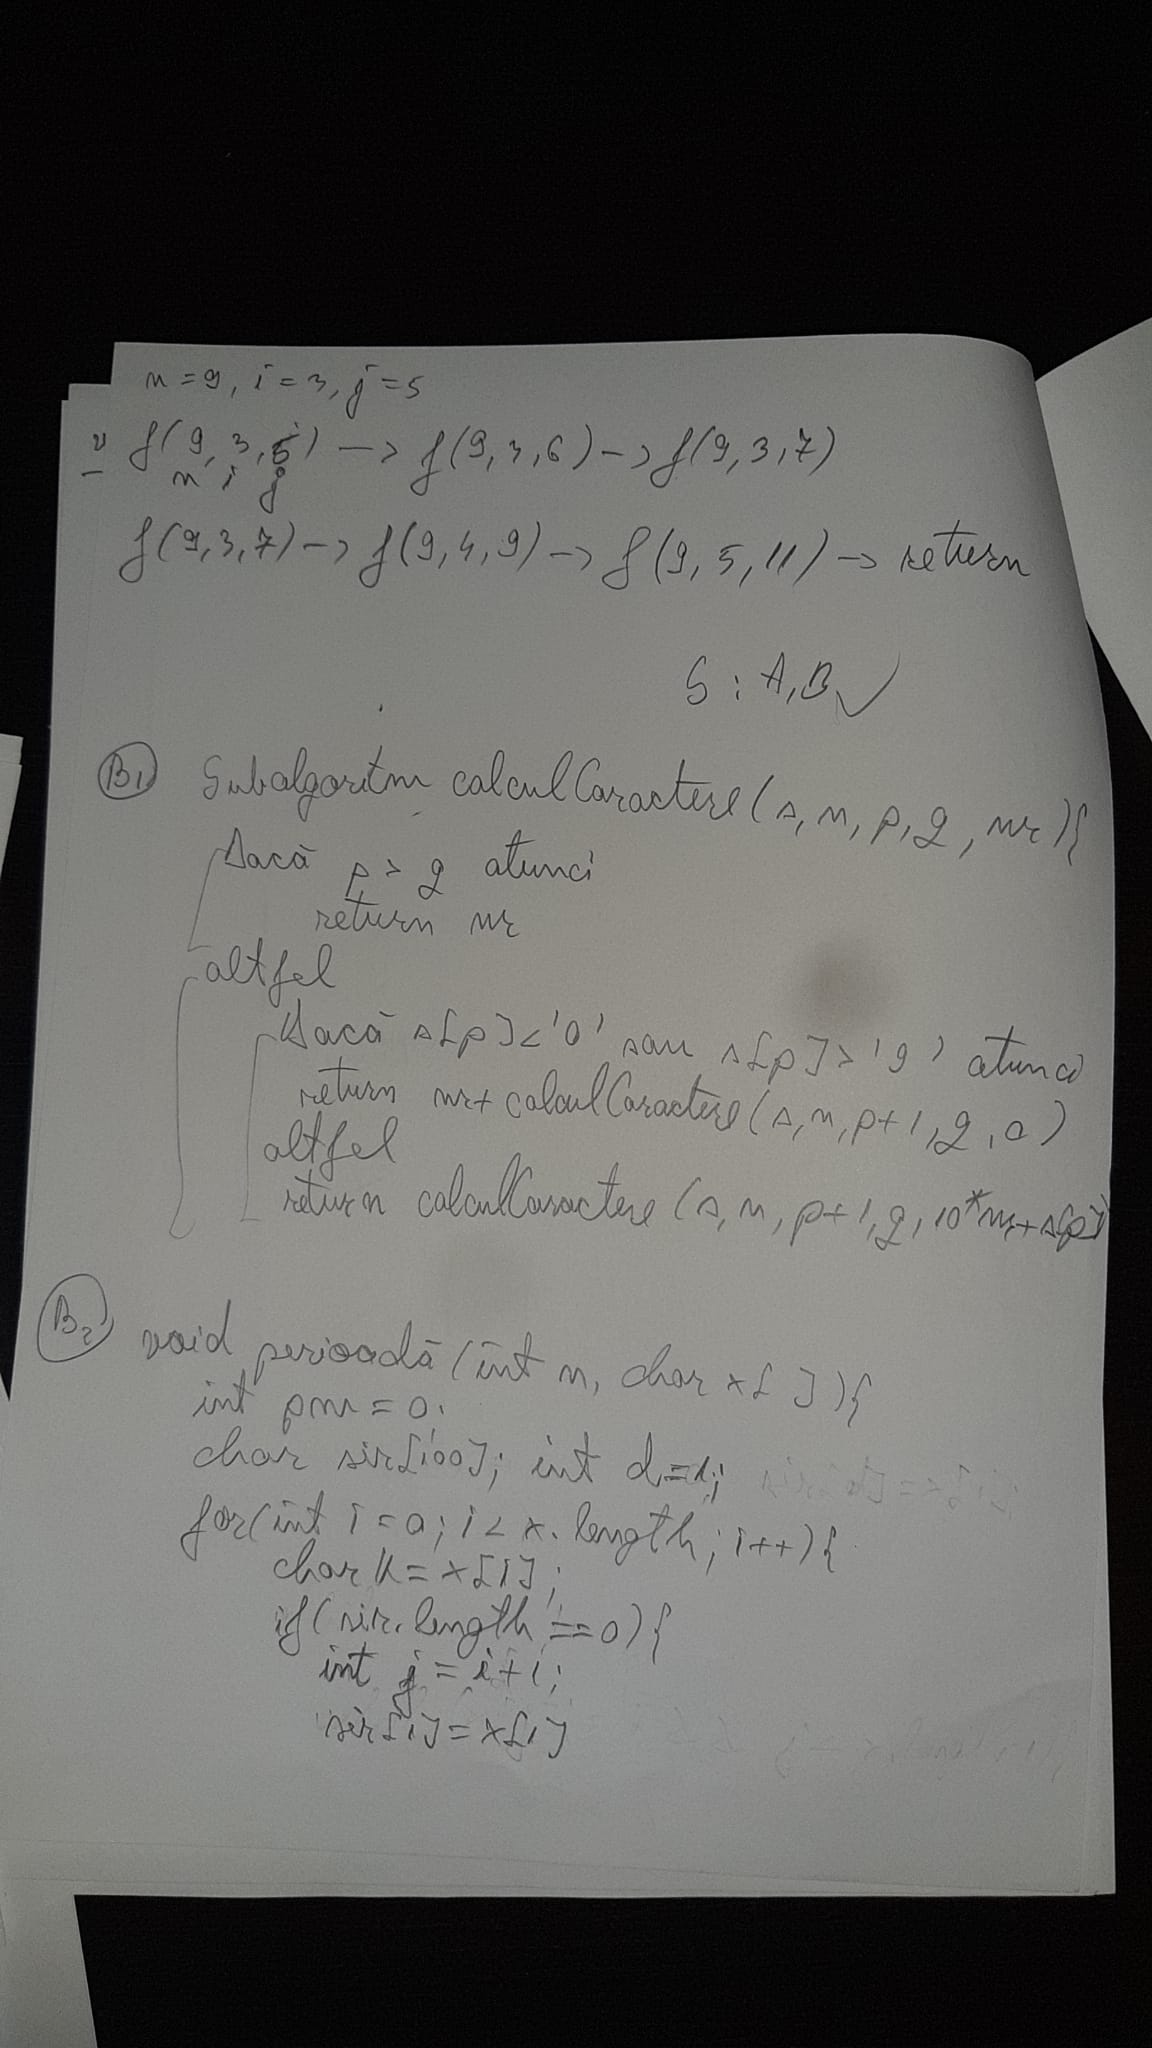 n=9, i=3, j=5
f(9,3,5) -> f(9,3,6) -> f(9,3,7)
n i j
f(9,3,7) -> f(9,4,9) -> f(9,5,11) -> return
S: A,B ✓
B1 Subalgoritm calculCaractere(s,n,p,q,nr){
Dacă p > q atunci
return nr
altfel
Dacă s[p]<'0' sau s[p]>'9' atunci
return nr+ calculCaractere(s,n,p+1,q,0)
altfel
return calculCaractere(s,n,p+1,q,10*nr+s[p])
B2 void perioadă(int n, char x[]){
int pm=0;
char sir[100]; int d=1;
for(int i=0; i<x.length; i++){
char k=x[i];
if(sir.length==0){
int j=i+1;
sir[i]=x[i]